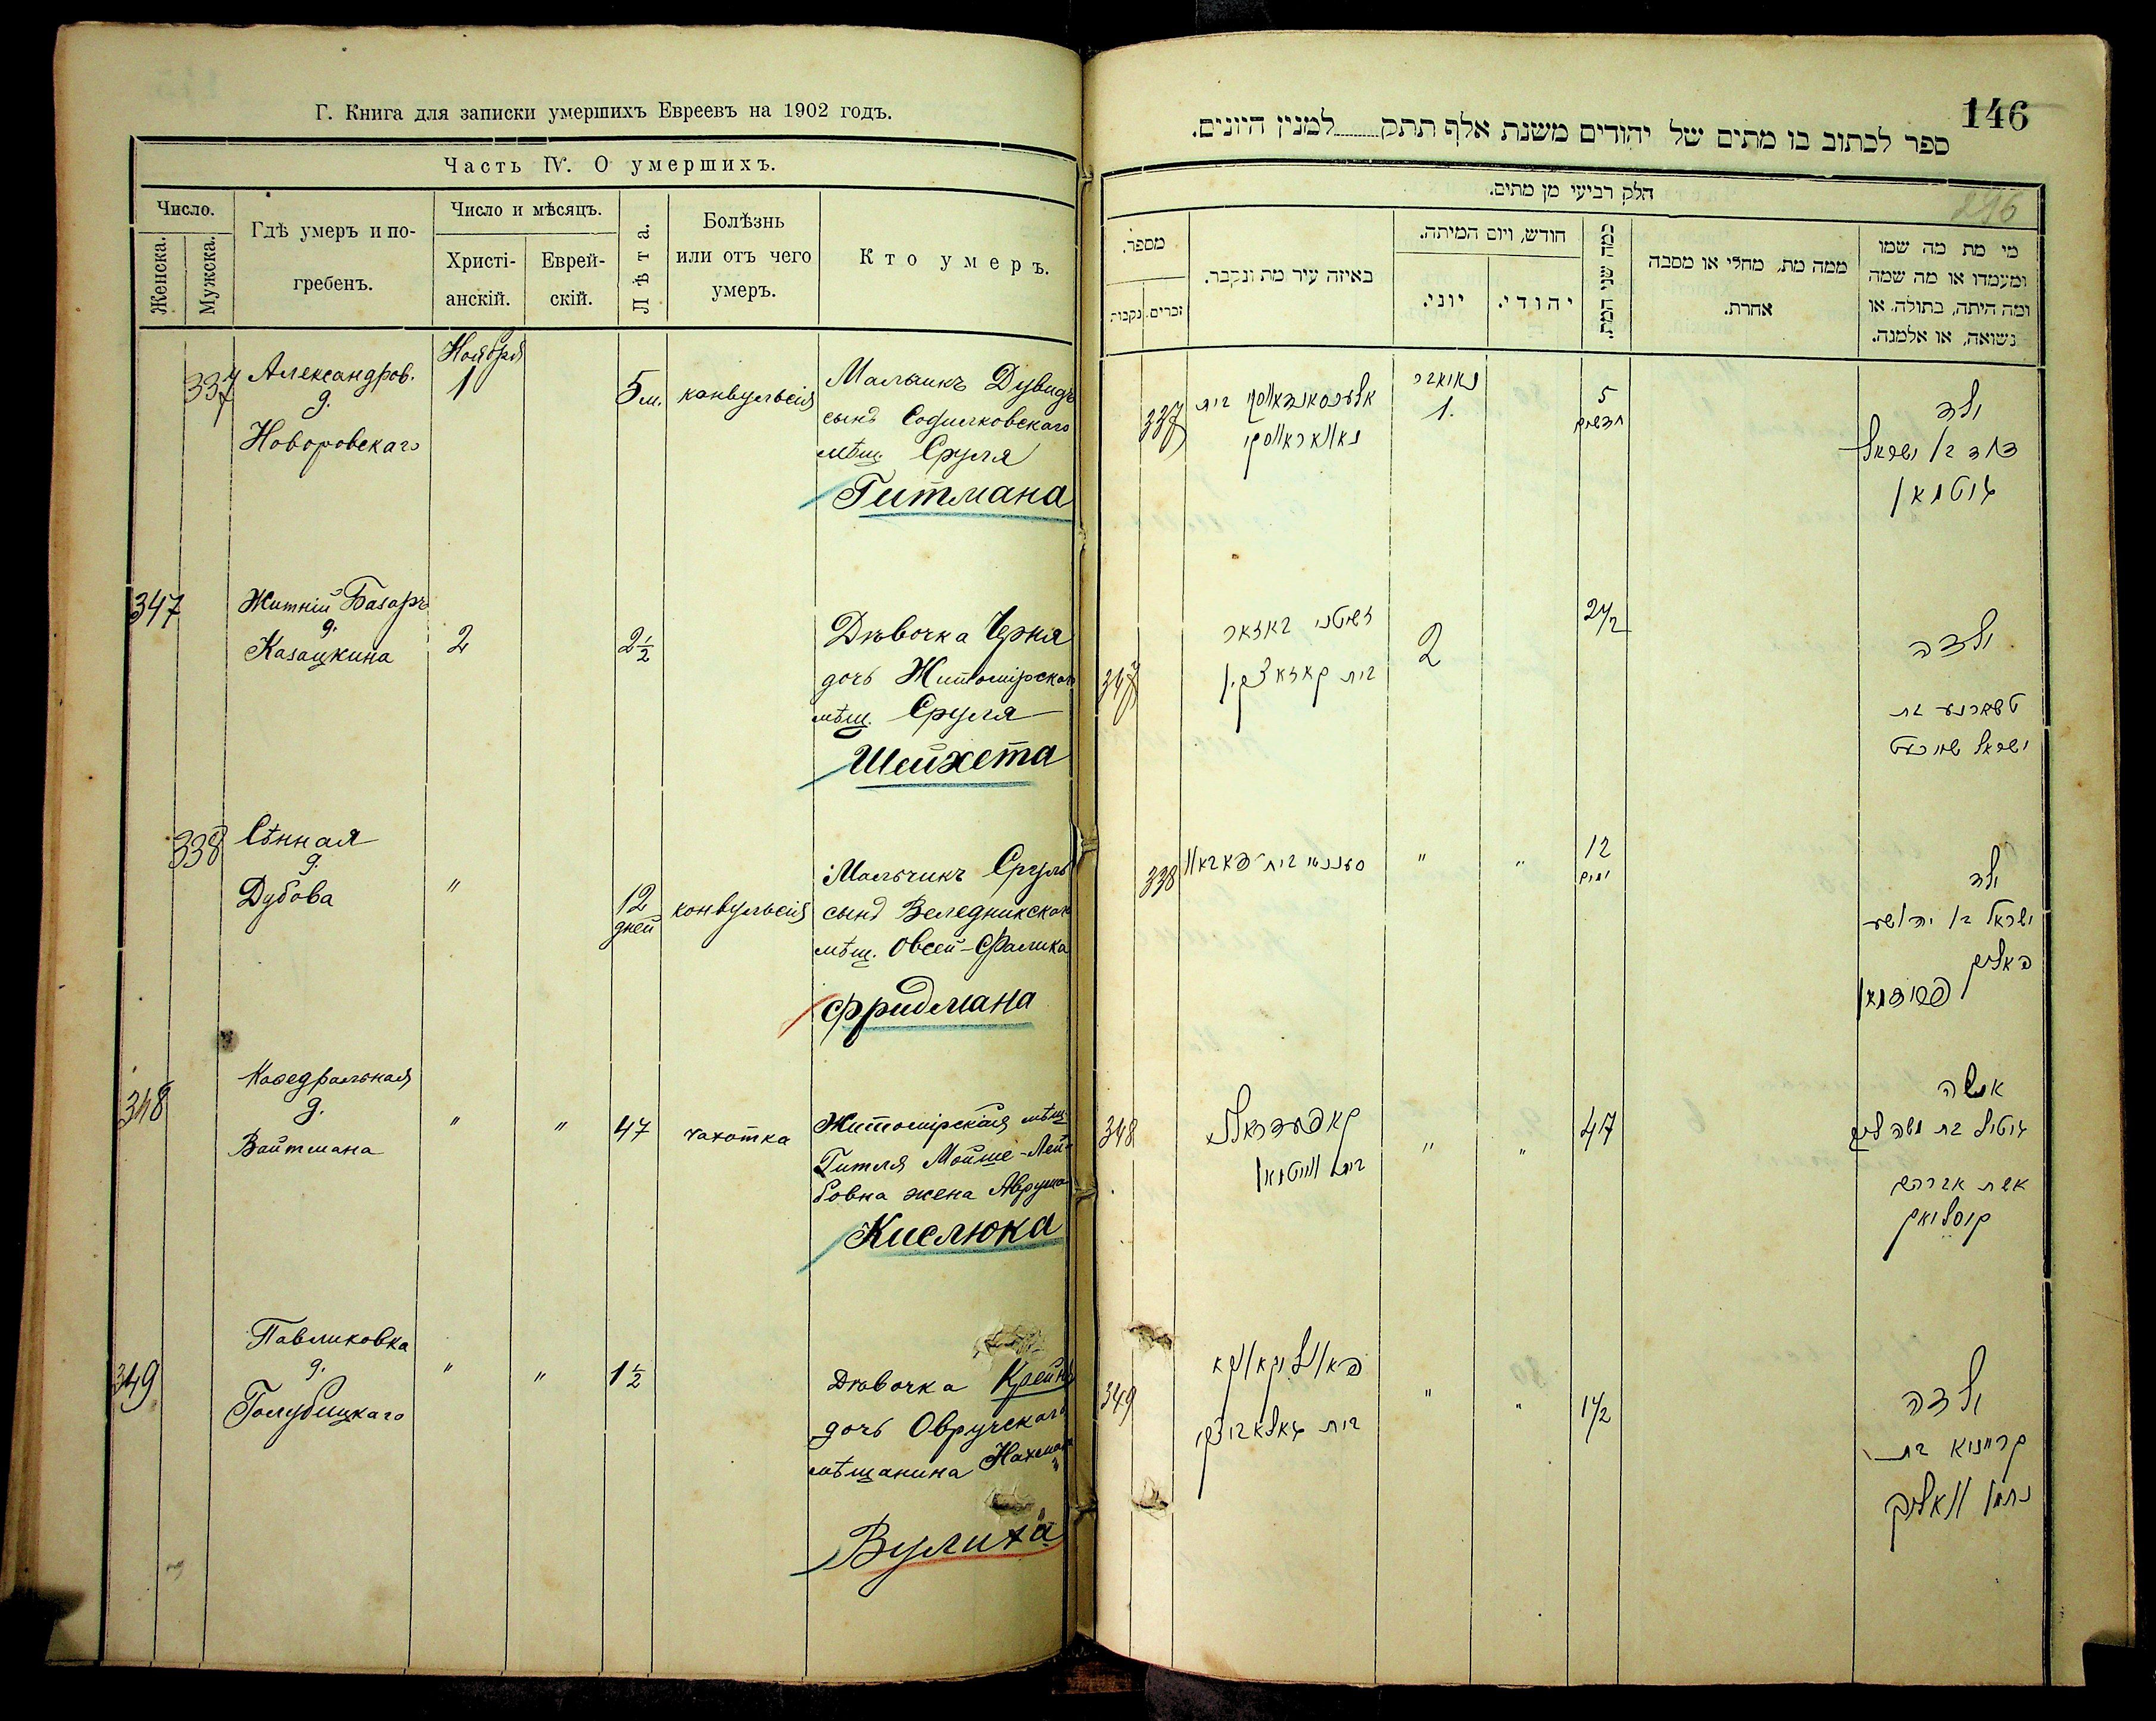 Г. Книга для записки умершихъ Евреевъ на 1902 годъ.
Часть IV. О умершихъ.
Число.
Женска.
Мужска.
Гдѣ умеръ и по-
гребенъ.
Число и мѣсяцъ.
Христі-
анскій.
Еврей-
скій.
Лѣта.
Болѣзнь
или отъ чего
умеръ.
Кто умеръ.
337
Александров.
д.
Новоровскаго
Ноября
1
5 м.
конвульсія
Мальчикъ Дувидъ
сынъ Судилковскаго
мѣщ. Сруля
Гитмана
347
Житній Базаръ
д.
Казацкина
2
2½
Дѣвочка Черня
дочь Житомірскаго
мѣщ. Сруля
Шейхета
338
Сѣнная
д.
Дубова
"
12
дней
конвульсія
Мальчикъ Сруль
сынъ Веледникскаго
мѣщ. Овсей-Фалика
Фридмана
348
Каѳедральная
д.
Вайтмана
"
"
47
чахотка
Житомірская мѣщ.
Гитля Мойше-Лей-
бовна жена Аврума
Кислюка
349
Павликовка
д.
Голубицкаго
"
"
1½
Дѣвочка Крейня
дочь Овручскаго
мѣщанина Нахмана
Вулиха
146
ספר לכתוב בו מתים של יהודים משנת אלף תתק למנין היונים.
חלק רביעי מן מתים.
מספר.
נקבות
זכרים.
באיזה עיר מת ונקבר.
חודש, ויום המיתה.
יוני.
יהודי.
כמה שני המת.
ממה מת, מחלי או מסבה
אחרת.
מי מת מה שמו
ומעמדו או מה שמה
ומה היתה, בתולה, או
נשואה, או אלמנה.
337
נאיאבר
1.
5
חדשים
ילד
דוד בן ישראל
גיטמאן
347
זשיטני באזאר
בית קאזאצקין
2
2½
ילדה
טשארנע בת
ישראל שויכעט
338
"
"
12
ימים
ילד
ישראל בן יהושע
פאליק
פרידמאן
348
קאפעדראל
בית ווייטמאן
"
"
47
אשה
גיטיל בת משה ליב
אשת אברהם
קיסליוק
349
פאוולקאווקא
בית גאלאביצקי
"
"
1½
ילדה
קריינא בת
נחמן וואליק